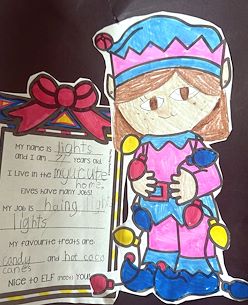 My name is lights
and I am years old.
I live in the my cute
home.
Elves have many jobs!
My job is haing
lights
My favourite treats are
candy and hot coco
canes
Nice to ELF (meet) you!